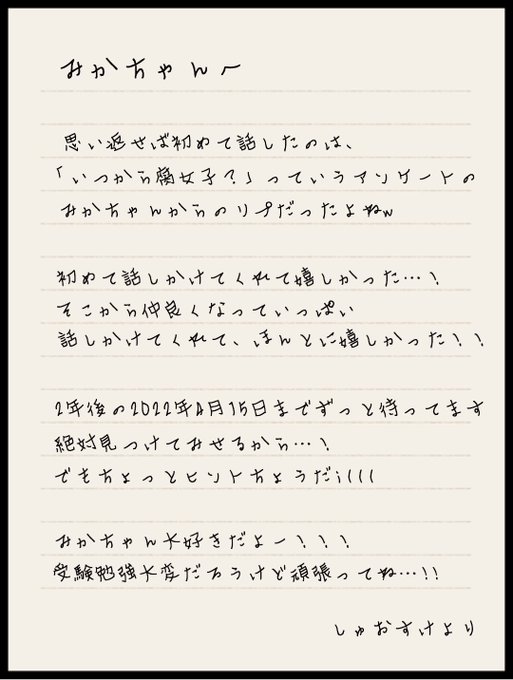 みかちゃんへ
思い返せば初めて話したのは、
「いつから腐女子？」っていうアンケートの
みかちゃんからのリプだったよねw
初めて話しかけてくれて嬉しかった…！
そこから仲良くなっていっぱい
話しかけてくれて、ほんとに嬉しかった！！
2年後の2022年4月15日までずっと待ってます
絶対見つけてみせるから…！
でもちょっとヒントちょうだi(((
みかちゃん大好きだよー！！！
受験勉強大変だろうけど頑張ってね…!!
しゅおすけより